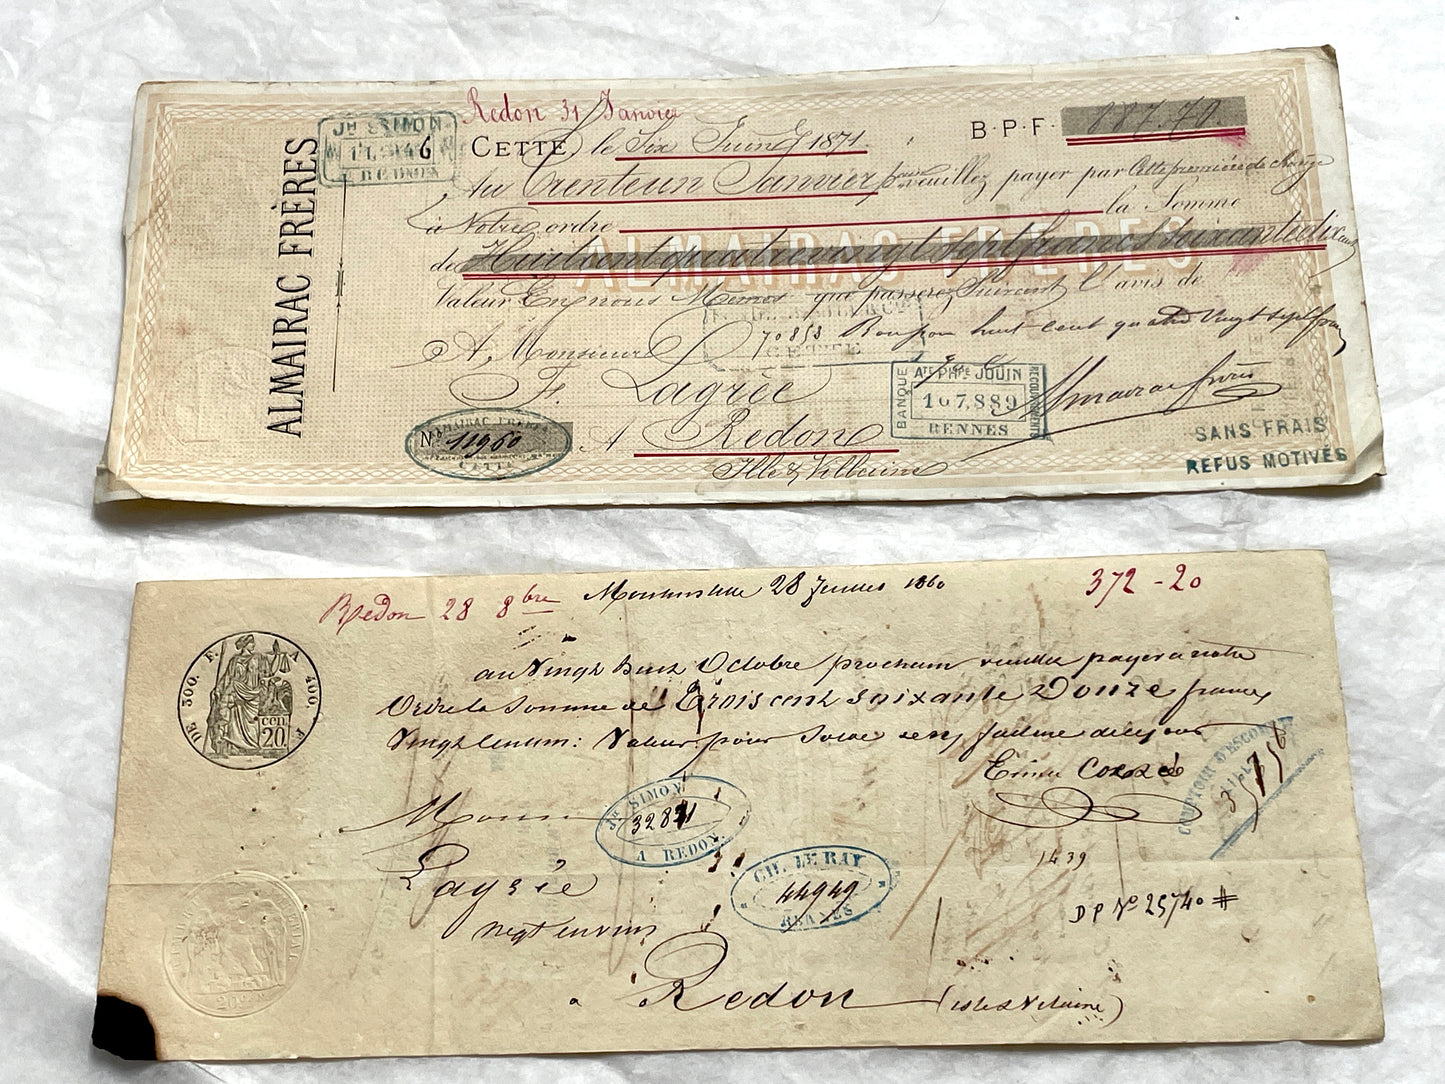 Redon 31 Janvier
CETTE, le Six Juin 1871.
B·P·F· 887.70.
JH SIMON
6
REDON
ALMAIRAC FRÈRES
Au Trenteun Janvier, veuillez payer par Cette première de change
à Notre ordre la Somme
de Huit cent quatre vingt sept francs soixante dix
ALMAIRAC FRÈRES
Valeur En nous Mêmes que passerez Suivant l'avis de
70853 Bon pour huit cent quatre Vingt sept francs
CETTE
A, Monsieur
F. Lagrée
BANQUE
ATE PHPE JOUIN
107.889
RENNES
RECOUVREMENTS
Almairac frères
ALMAIRAC FRÈRES
No 11960
CETTE
A Redon
Ille & Villaine
SANS FRAIS
REFUS MOTIVÉS
Redon 28 8bre
28 1860
372-20
au Vingt huit Octobre prochain veuillez payer a notre
Ordre la Somme de Trois cent soixante Douze francs
Vingt Centimes: Valeur pour Solde
DE 300. F. A 400. F.
CEN. 20
COMPTOIR D'ESCOMPTE
JH SIMON
32871
A REDON.
Monsieur
CH. LE RAY
44949
RENNES
1439
Lagrée
DP No 25740 #
negt en vins
a Redon